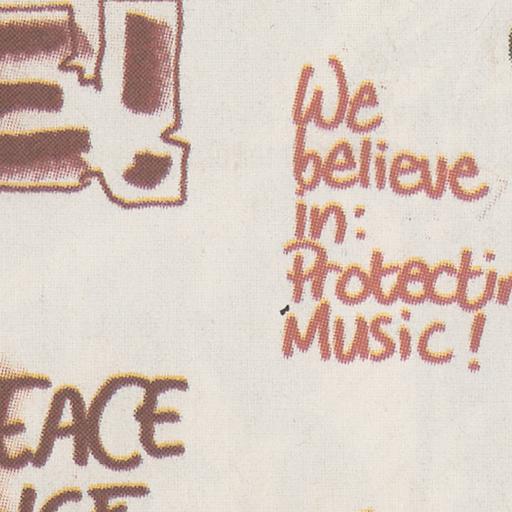 We
believe
in:
Protectin
Music!
EACE